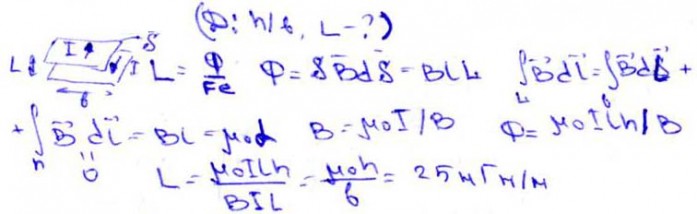 (Φ; h/b, L-?)
L I S I b L = Φ/Fe Φ = ∫B̄dS̄ = Blh ∫B̄dl̄ = ∫B̄dl̄ +
+ ∫B̄dl̄ = Bl = μ₀d B = μ₀I/B Φ = μ₀Ilh/B
L = μ₀Ilh/BIL = μ₀h/b = 25нГн/м